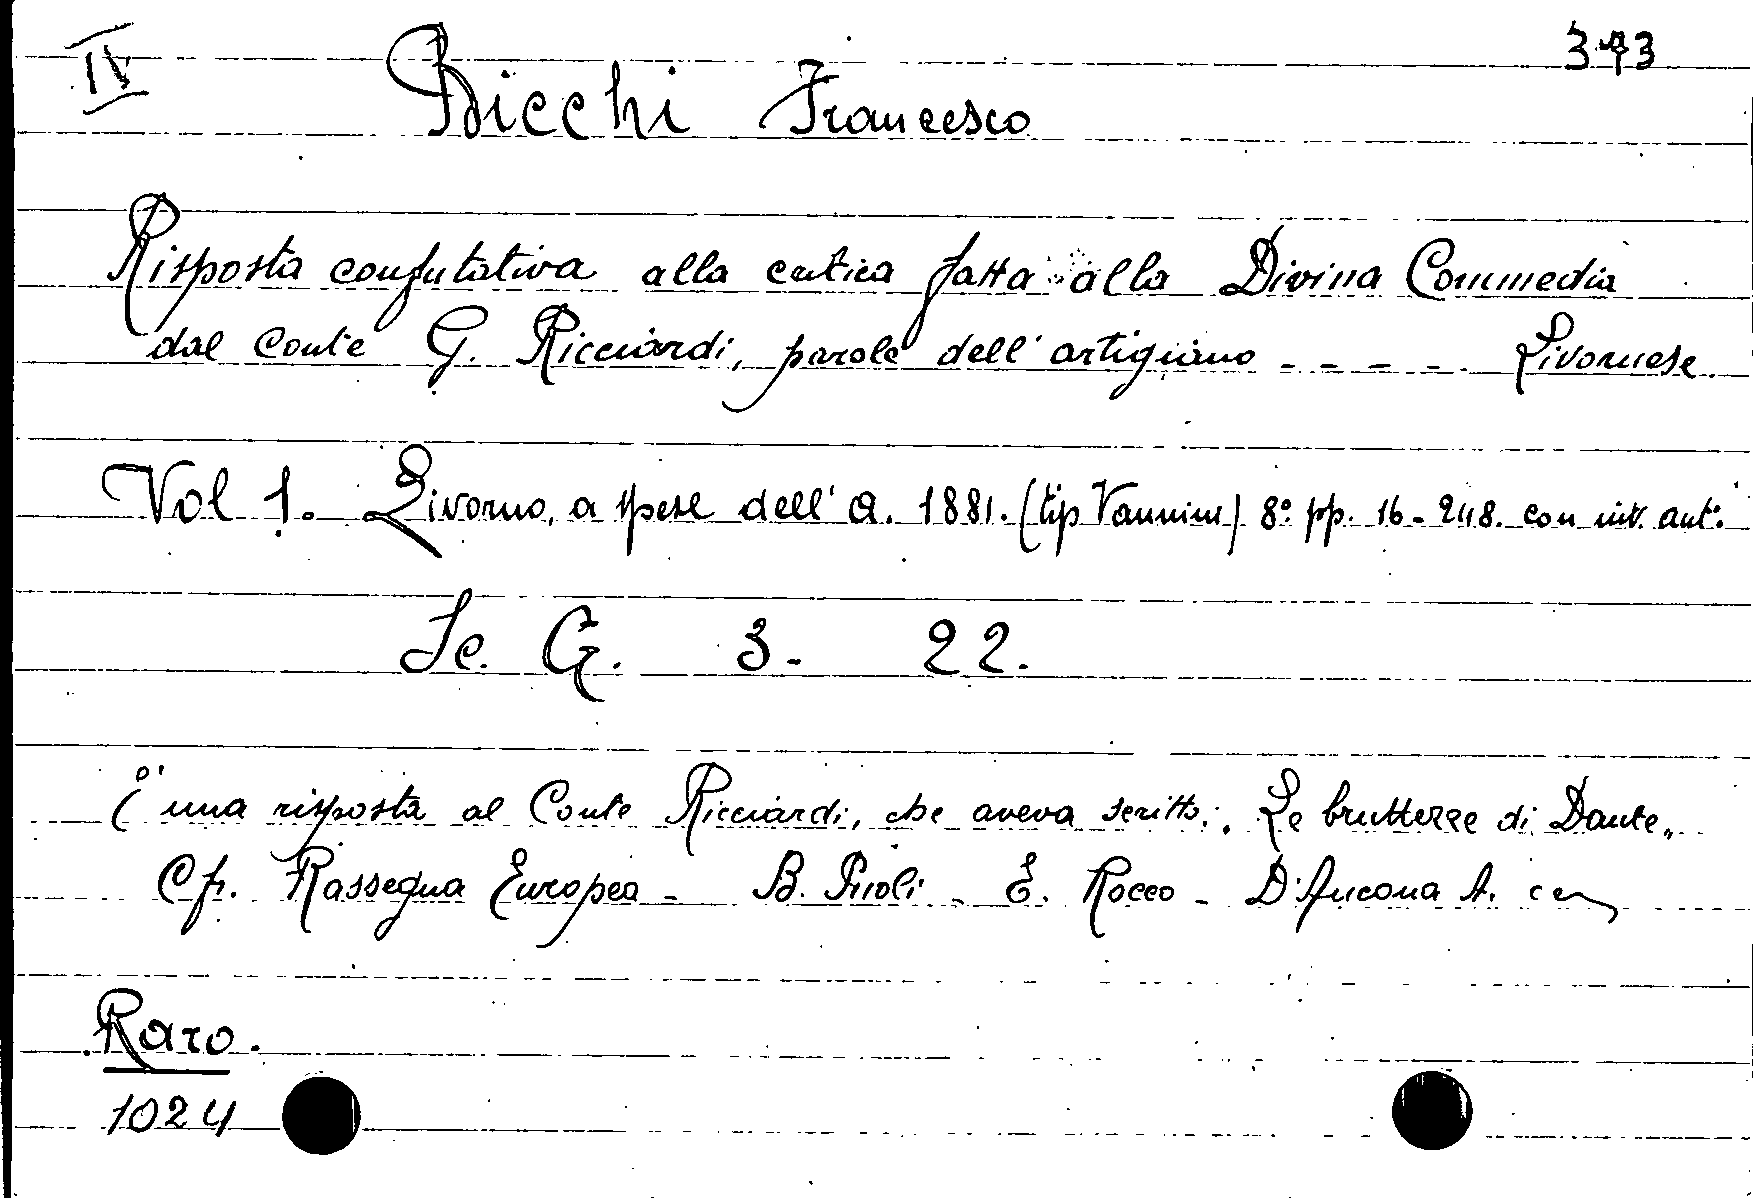 IV 373
Bicchi Francesco
Risposta confutativa alla critica fatta alla Divina Commedia
dal Conte G. Ricciardi, parole dell'artigiano - - - - Livornese.
Vol 1. Livorno, a spese dell'A. 1881. (tip Vannini) 8° pp. 16-248. con
Sc. G. 3- 22.
È una risposta al Conte Ricciardi, che aveva scritto: Le bruttezze di Dante„
Cfr. Rassegna Europea - B. - E. Rocco - D'Ancona A.
Raro.
1024